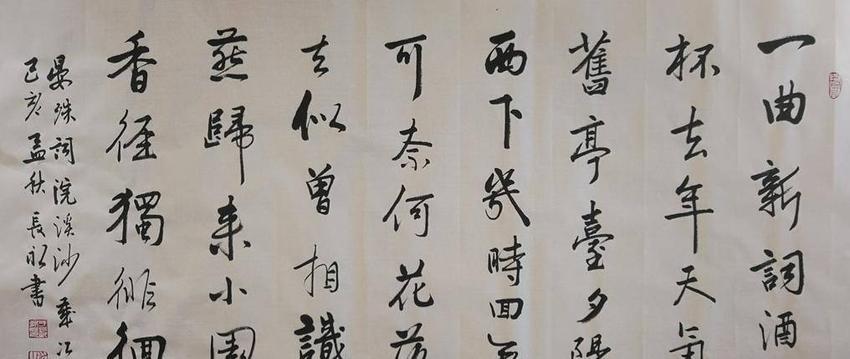 一曲新詞酒
杯去年天氣
舊亭臺夕陽
西下幾時回
可奈何花落
去似曾相識
燕歸來小園
香徑獨徘徊
晏殊詞浣溪沙歲次
己亥孟秋長書